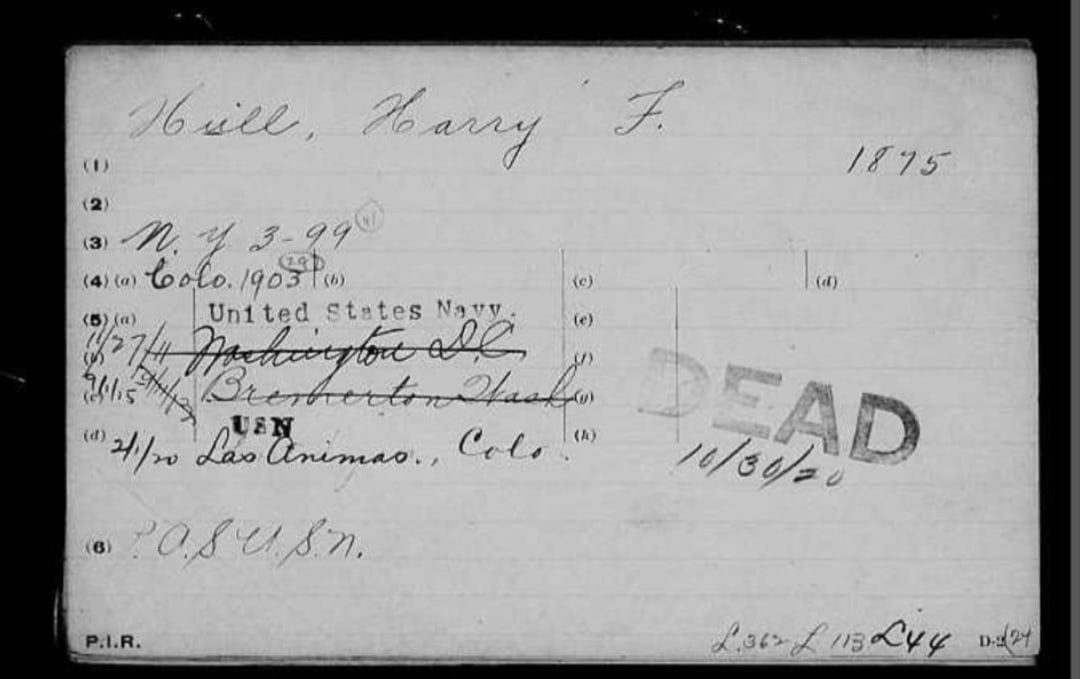 Hull, Harry F.
1875
(1)
(2)
(3) N. Y 3-99
(4) (a) Colo. 1903 (b) (c) (d)
(5) (a) United States Navy. (e)
11/27/11 Washington D.C. (f)
9/1/15 Bremerton Wash (g)
USN
(d) 2/1/20 Las Animas., Colo. (h)
DEAD
10/30/20
(6) P.A.S.U.S.N.
P.I.R. L.362 L 113 L44 D-2